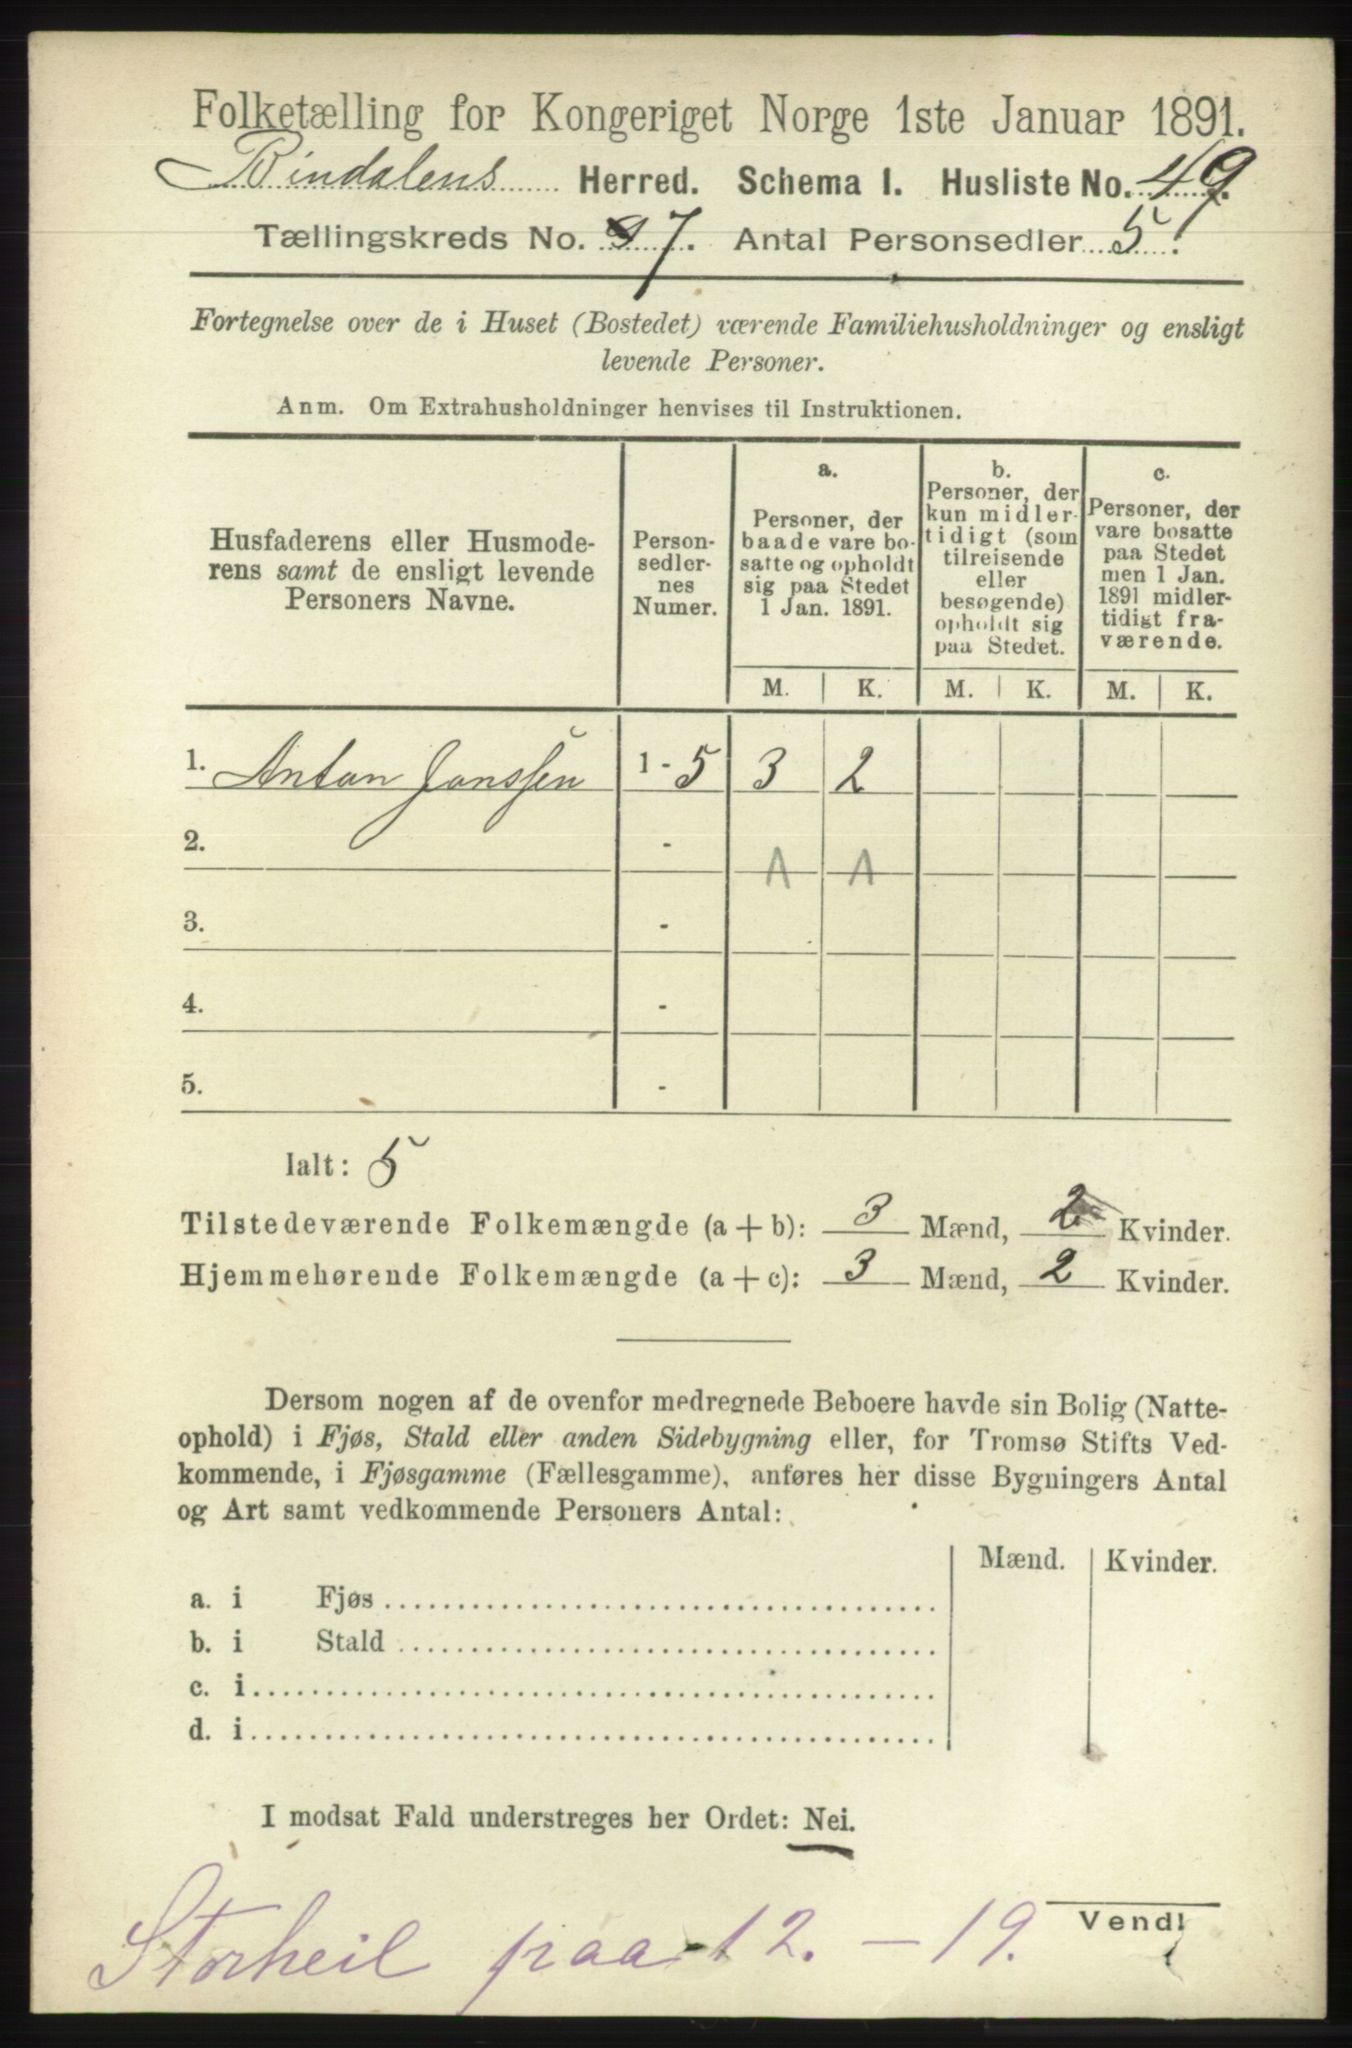 Folketælling for Kongeriget Norge 1ste Januar 1891.
Bindalens Herred. Schema 1. Husliste No. 49.
Tællingskreds No. 7. Antal Personsedler 5.
Fortegnelse over de i Huset (Bostedet) værende Familiehusholdninger og ensligt
levende Personer.
Anm. Om Extrahusholdninger henvises til Instruktionen.
Husfaderens eller Husmode-
rens samt de ensligt levende
Personers Navne.
Person-
sedler-
nes
Numer.
a.
Personer, der
baade vare bo-
satte og opholdt
sig paa Stedet
1 Jan. 1891.
b.
Personer, der
kun midler-
tidigt (som
tilreisende
eller
besøgende)
opholdt sig
paa Stedet.
c.
Personer, der
vare bosatte
paa Stedet
men 1 Jan.
1891 midler-
tidigt fra-
værende.
M. K. M. K. M. K.
1. Anton Janssen 1 - 5 3 2
2. -
3. -
4. -
5. -
Ialt: 5
Tilstedeværende Folkemængde (a + b): 3 Mænd, 2 Kvinder.
Hjemmehørende Folkemængde (a + c): 3 Mænd, 2 Kvinder.
Dersom nogen af de ovenfor medregnede Beboere havde sin Bolig (Natte-
ophold) i Fjøs, Stald eller anden Sidebygning eller, for Tromsø Stifts Ved-
kommende, i Fjøsgamme (Fællesgamme), anføres her disse Bygningers Antal
og Art samt vedkommende Personers Antal:
Mænd. Kvinder.
a. i Fjøs
b. i Stald
c. i
d. i
I modsat Fald understreges her Ordet: Nei.
Vend!
Storheil paa 12. - 19.